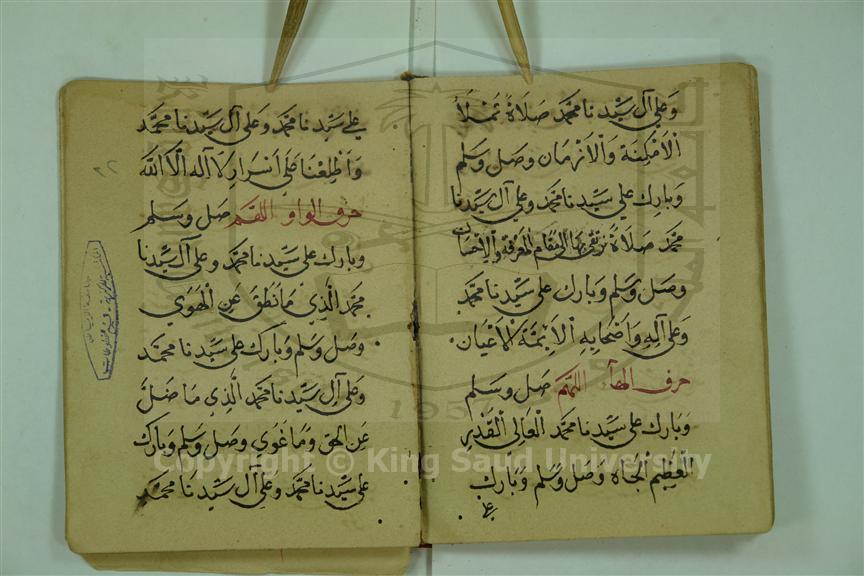 وعلى آل سيدنا محمد صلاة تملأ
الامكنة والازمان وصل وسلم
وبارك على سيدنا محمد وعلى آل سيدنا
محمد صلاة نرتقى بها الى مقام المعرفة والاحسان
وصل وسلم وبارك على سيدنا محمد
وعلى آله واصحابه الائمة الاعيان
حرف الهآء اللهم صل وسلم
وبارك على سيدنا محمد العالى القدر
العظيم الجاه وصل وسلم وبارك
على
على سيدنا محمد وعلى آل سيدنا محمد
واطلعنا على أسرار لا آله الا الله
حرف الواو اللهم صل وسلم
وبارك على سيدنا محمد وعلى آل سيدنا
محمد الذي ما نطق عن الهوي
وصل وسلم وبارك على سيدنا محمد
وعلى آل سيدنا محمد الذي ما ضل
عن الحق وما غوي وصل وسلم وبارك
على سيدنا محمد وعلى آل سيدنا محمد
٢٢
Copyright © King Saud University
195